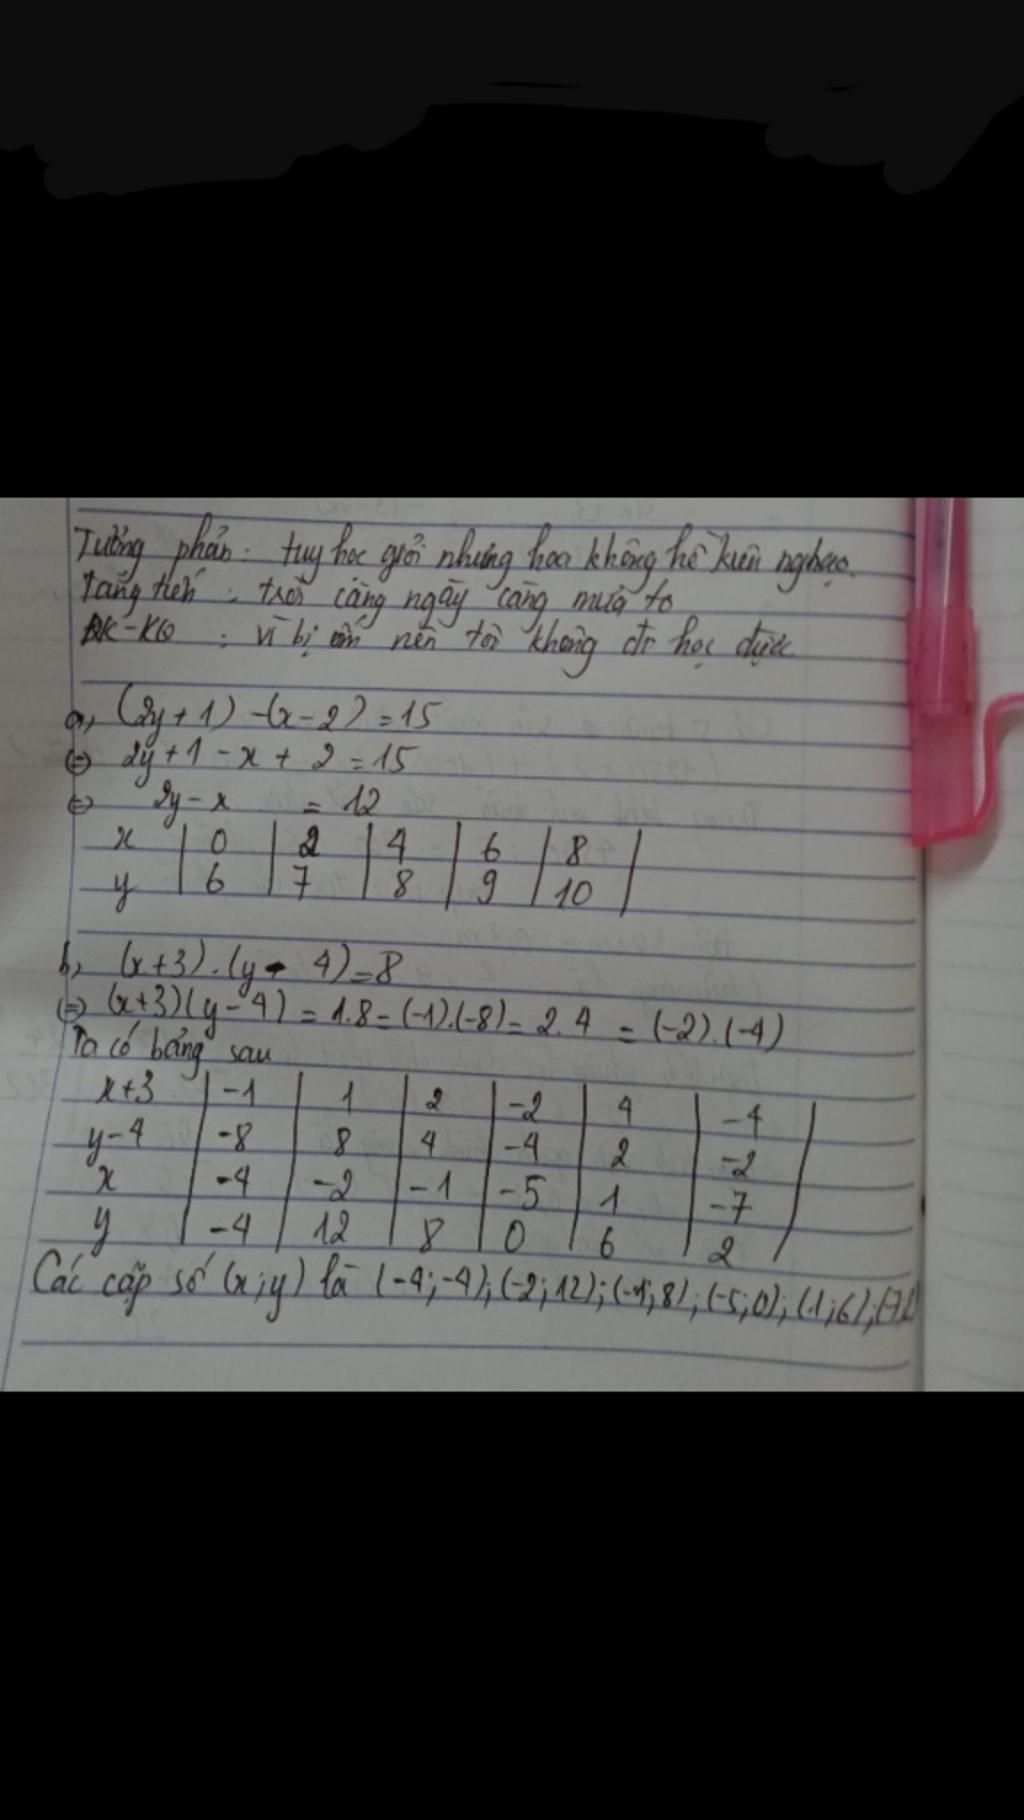 Tương phản: tuy học giỏi nhưng hoa không hề kiêu ngạo.
tăng tiến: trời càng ngày càng mưa to
ĐK-KQ: vì bị ốm nên tôi không đi học được
a, (2y+1)-(x-2)=15
⇔ 2y+1-x+2=15
⇔ 2y-x = 12
x | 0 | 2 | 4 | 6 | 8 |
y | 6 | 7 | 8 | 9 | 10 |
b, (x+3).(y-4)=8
⇔ (x+3)(y-4)=1.8=(-1).(-8)=2.4=(-2).(-4)
Ta có bảng sau
x+3 | -1 | 1 | 2 | -2 | 4 | -4 |
y-4 | -8 | 8 | 4 | -4 | 2 | -2 |
x | -4 | -2 | -1 | -5 | 1 | -7 |
y | -4 | 12 | 8 | 0 | 6 | 2 |
Các cặp số (x;y) là (-4;-4);(-2;12);(-1;8);(-5;0);(1;6);